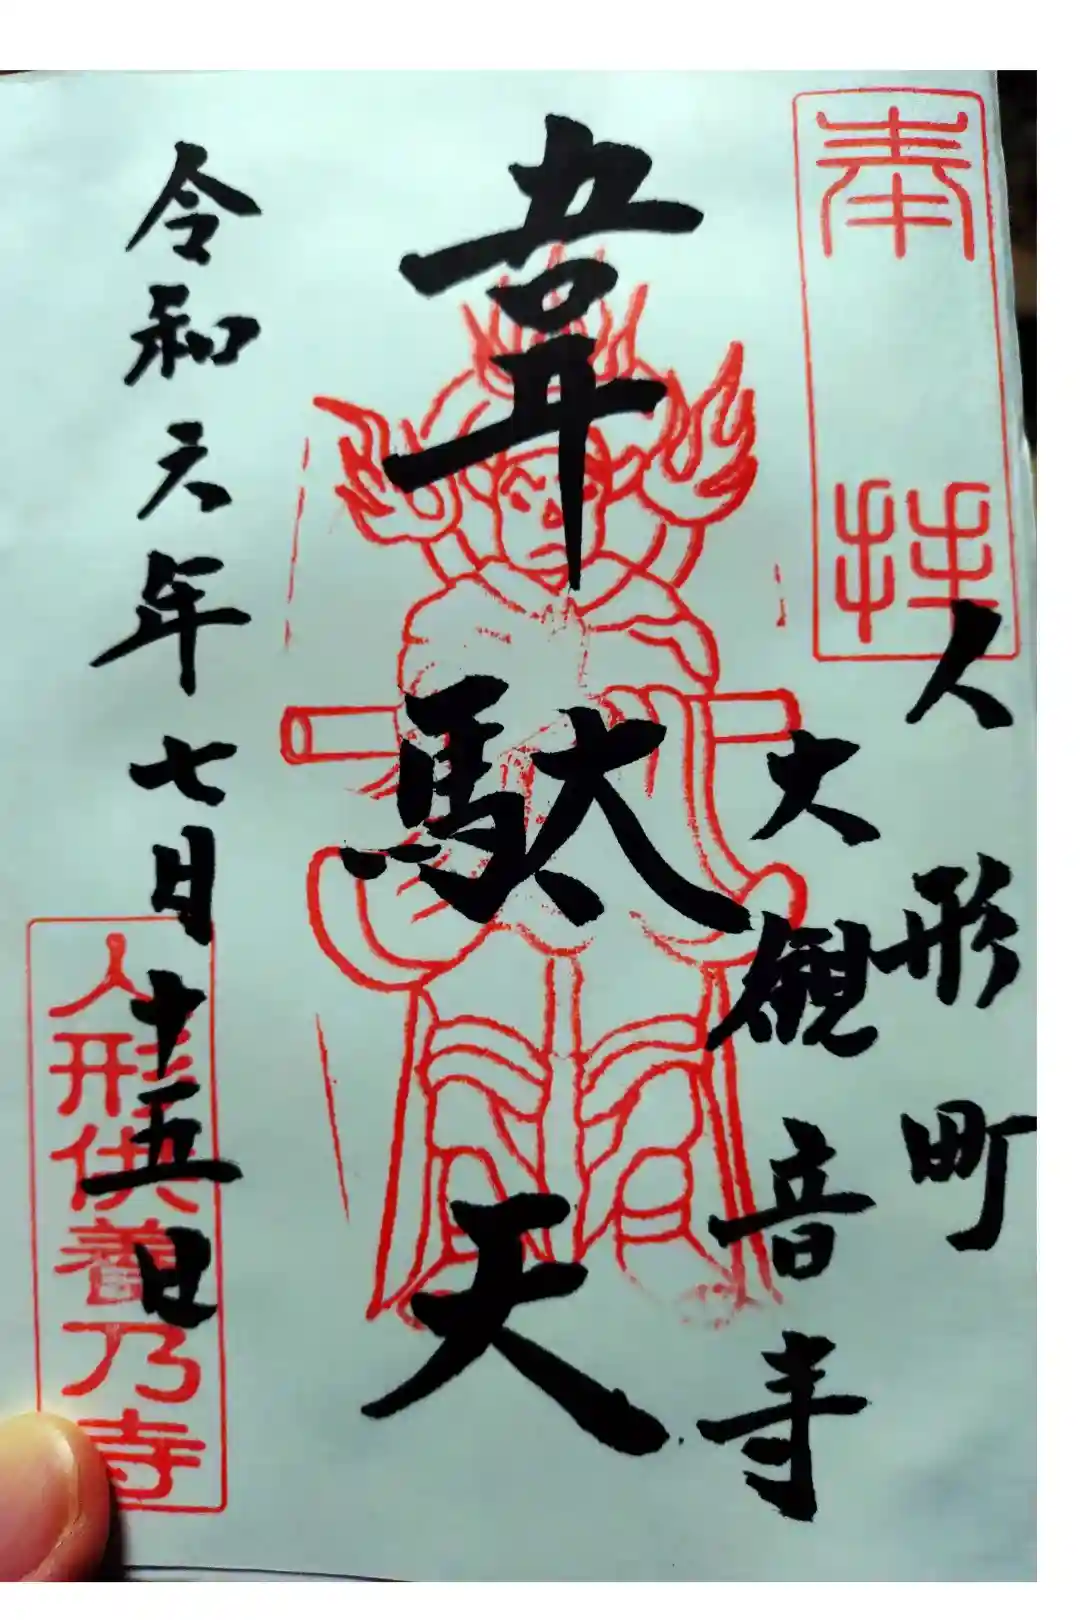 奉拝
人形町
大観音寺
韋駄天
令和六年七月十五日
人形供養乃寺